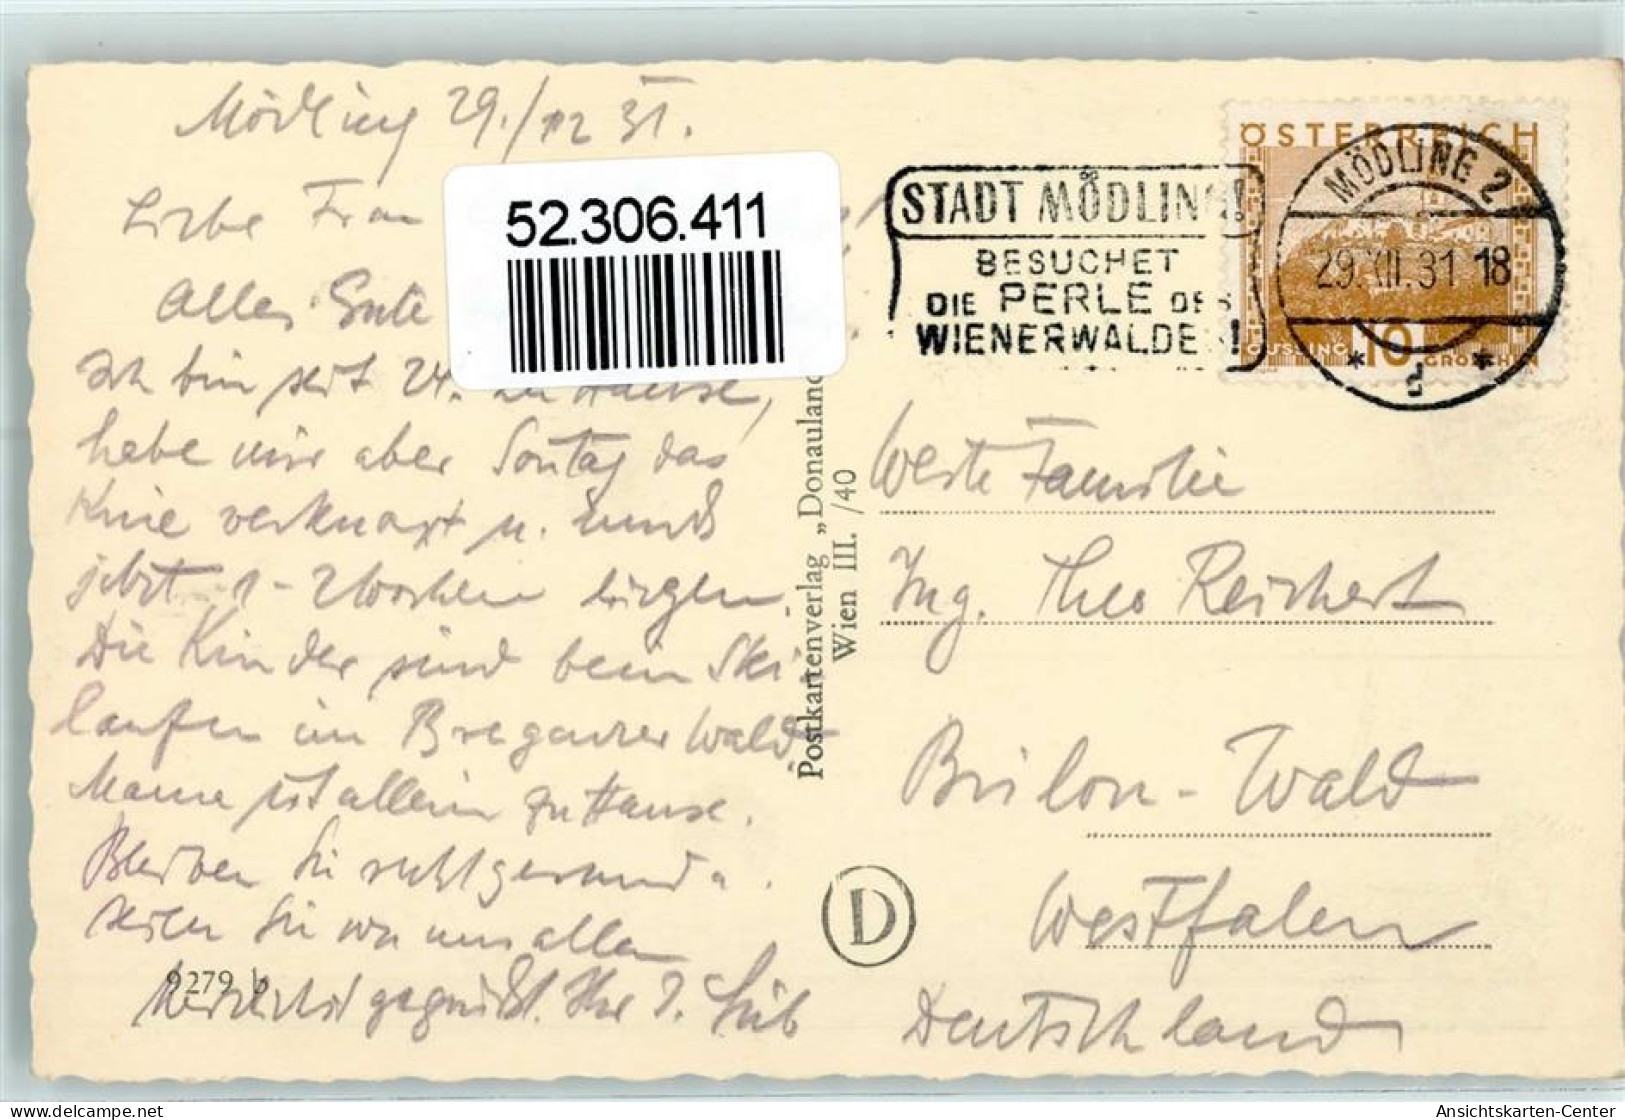 Mödling 29./12 31.
52.306.411
Liebe Frau
Alles Gute
Ich bin seit 24. zu Hause,
habe mir aber Sontag das
Knie verknaxt u. muß
jetzt 1-2 Wochen liegen.
Die Kinder sind beim Ski-
laufen im Bregenzer Wald.
Mama ist allein zu Hause.
Bleiben Sie recht gesund u.
seien Sie von uns allen
herzlichst gegrüßt. Ihre
9279 b
Postkartenverlag „Donauland
Wien III. /40
D
STADT MÖDLING!
BESUCHET
DIE PERLE DES
WIENERWALDES!
ÖSTERREICH
GÜSSING 10 GROSCHEN
MÖDLING 2
29.XII.31 18
* *
Werte Familie
Ing. Theo Reichert
Brilon-Wald
Westfalen
Deutschland
delcampe.net
Ansichtskarten-Center